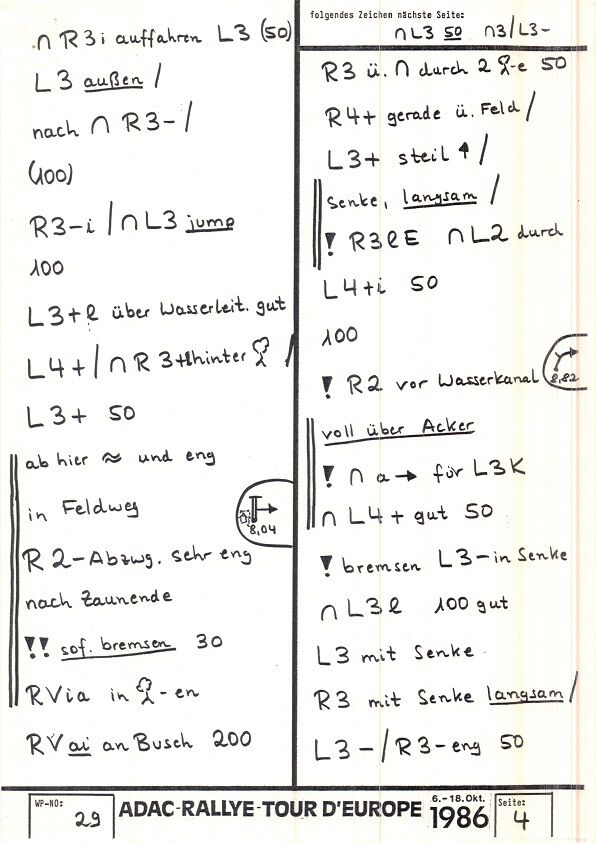 ∩ R3i auffahren L3 (50)
L3 außen /
nach ∩ R3- /
(100)
R3-i / ∩ L3 jump
100
L3+l über Wasserleit. gut
L4+ / ∩ R3+l hinter /
L3+ 50
ab hier ≈ und eng
in Feldweg
8,04
R2-Abzwg. sehr eng
nach Zaunende
!! sof. bremsen 30
RVia in -en
RVai an Busch 200
folgendes Zeichen nächste Seite:
∩ L3 50 ∩3/L3-
R3 ü. ∩ durch 2 -e 50
R4+ gerade ü. Feld /
L3+ steil ↑ /
Senke, langsam /
! R3lE ∩ L2 durch
L4+i 50
100
! R2 vor Wasserkanal
8,82
voll über Acker
! ∩ a → für L3K
∩ L4+ gut 50
! bremsen L3-in Senke
∩ L3l 100 gut
L3 mit Senke
R3 mit Senke langsam /
L3- / R3-eng 50
WP-NO: 29
ADAC-RALLYE-TOUR D'EUROPE 6.-18.Okt. 1986
Seite: 4